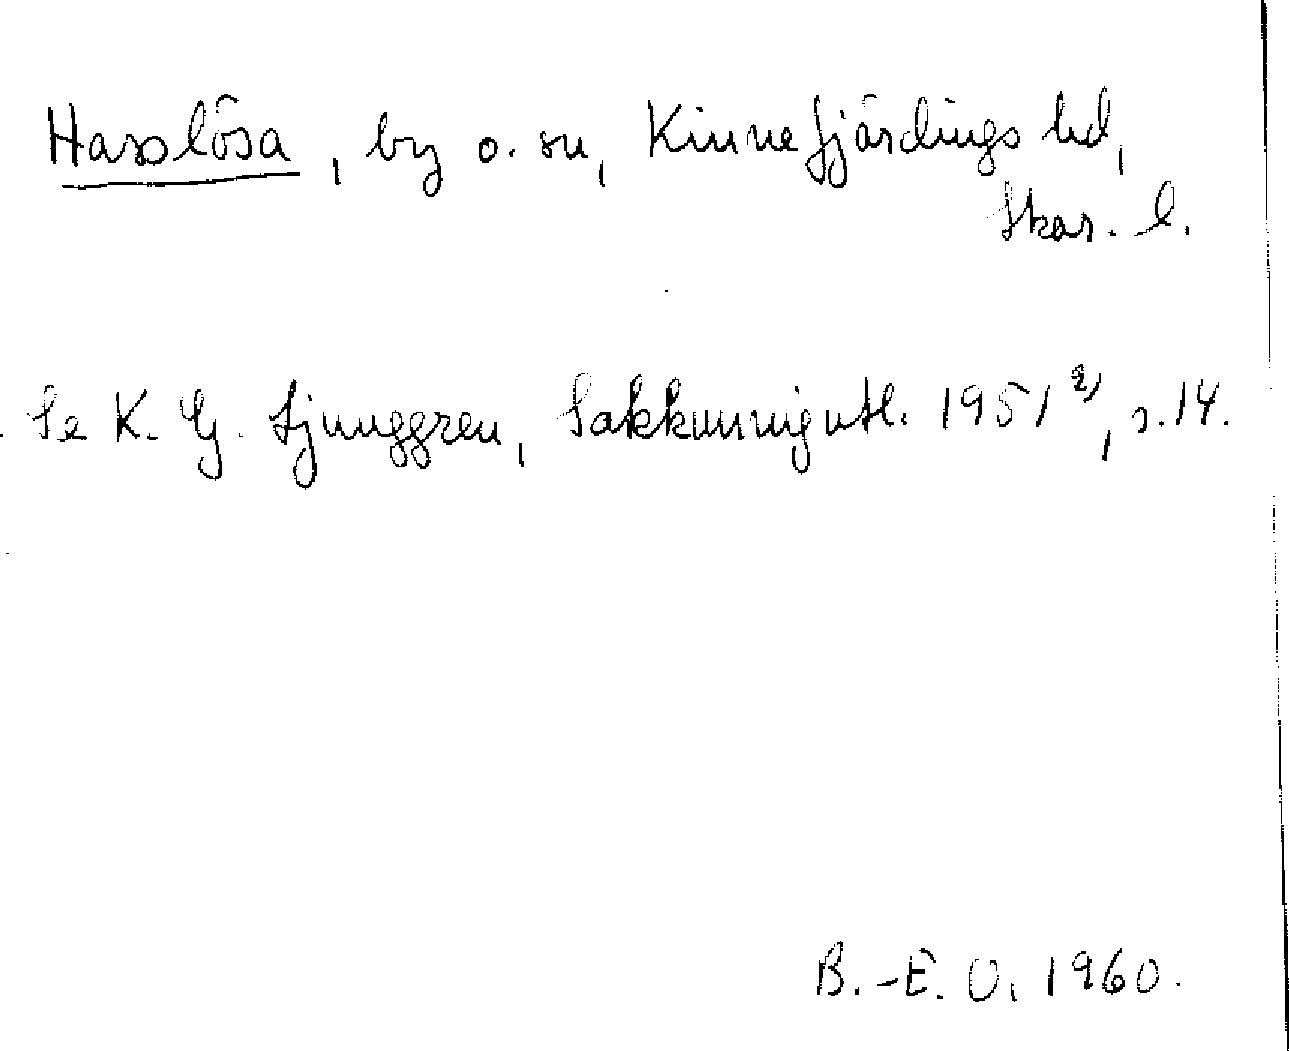 Hasslösa, by o. sn, Kinnefjärdings hd,
Skar. l.
Se K. G. Ljunggren, Sakkunnigutl. 1951 2), s. 14.
B.-E. O. 1960.